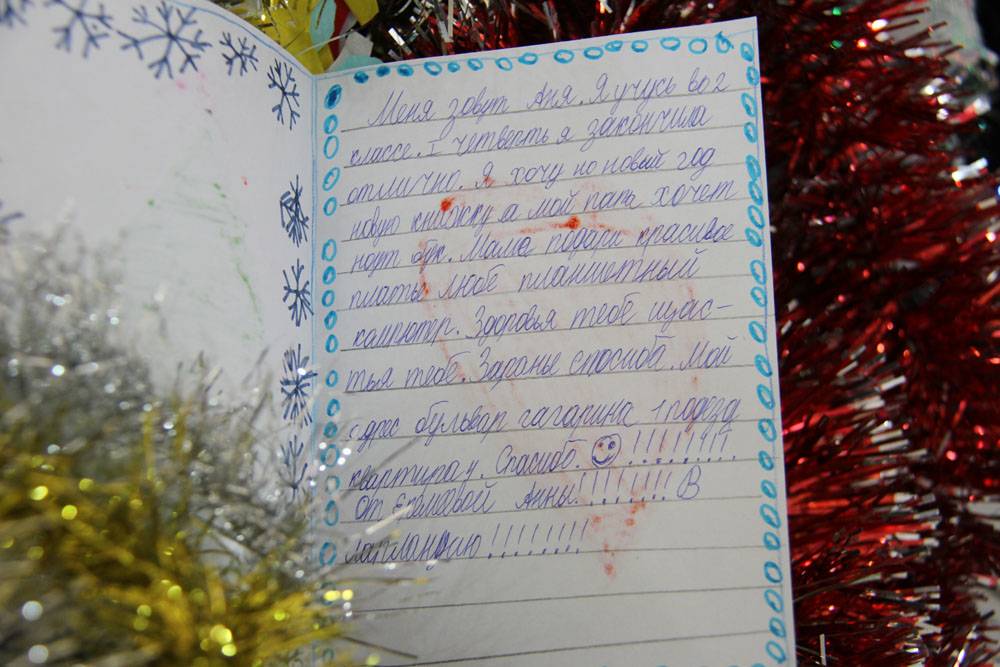 Меня зовут Аня. Я учусь во 2
классе. I четверть я закончила
отлично. Я хочу но новый год
новую книжку а мой папа хочет
ноут бук. Мама подари красивое
платье Любе планшетный
кампютр. Здоровья тебе щас-
тья тебе. Заранье спосиба. Мой
адрес бульвар гагарина 1 подезд
квартира 4. Спасиба. !!!!!!!!
От Анны!!!!!!!! В
лапландию!!!!!!!!